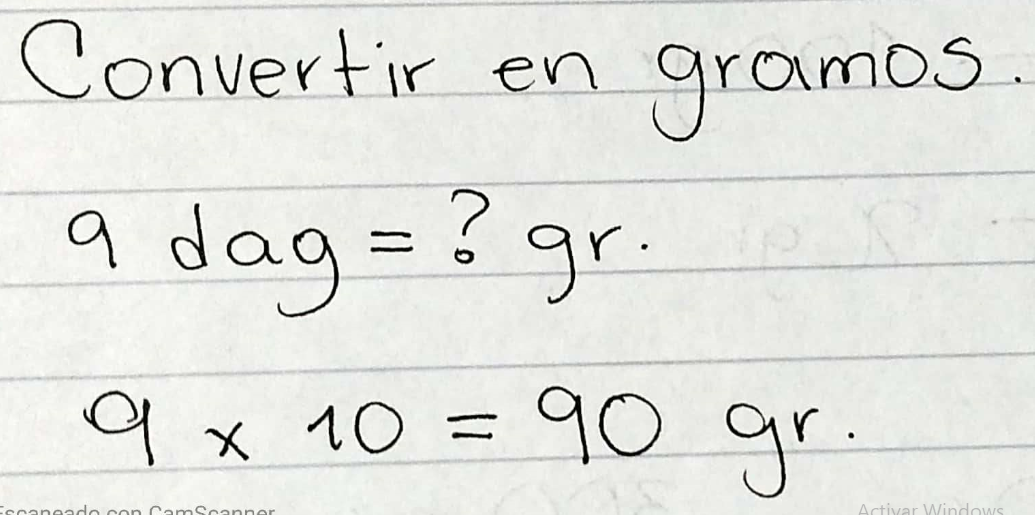 Convertir en gramos.
9 dag = ? gr.
9 x 10 = 90 gr.
Escaneado con CamScanner
Activar Windows